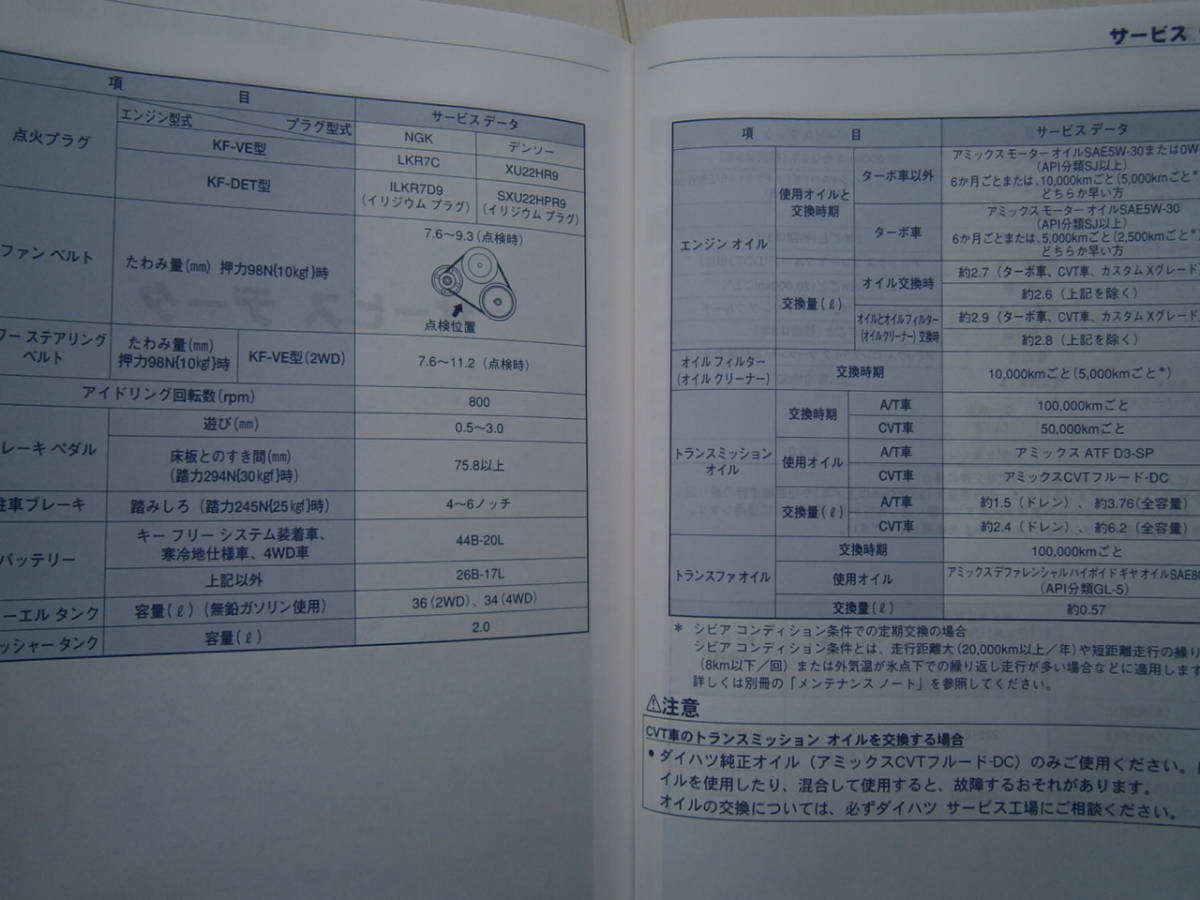 項 目
サービス データ
点火プラグ
エンジン型式
プラグ型式
NGK
デンソー
KF-VE型
LKR7C
XU22HR9
KF-DET型
ILKR7D9
(イリジウム プラグ)
SXU22HPR9
(イリジウム プラグ)
ファン ベルト
たわみ量(mm) 押力98N{10kgf}時
7.6〜9.3(点検時)
点検位置
ワー ステアリング
ベルト
たわみ量(mm)
押力98N{10kgf}時
KF-VE型(2WD)
7.6〜11.2(点検時)
アイドリング回転数(rpm)
800
レーキ ペダル
遊び(mm)
0.5〜3.0
床板とのすき間(mm)
(踏力294N{30kgf}時)
75.8以上
駐車ブレーキ
踏みしろ(踏力245N{25kgf}時)
4〜6ノッチ
バッテリー
キー フリー システム装着車、
寒冷地仕様車、4WD車
44B-20L
上記以外
26B-17L
ーエル タンク
容量(ℓ)(無鉛ガソリン使用)
36(2WD)、34(4WD)
ッシャー タンク
容量(ℓ)
2.0
サービス
項 目
サービス データ
エンジン オイル
使用オイルと
交換時期
ターボ車以外
アミックス モーター オイルSAE5W-30または0W-
(API分類SJ以上)
6か月ごとまたは、10,000kmごと(5,000kmごと*
どちらか早い方
ターボ車
アミックス モーター オイルSAE5W-30
(API分類SJ以上)
6か月ごとまたは、5,000kmごと(2,500kmごと*
どちらか早い方
交換量(ℓ)
オイル交換時
約2.7(ターボ車、CVT車、カスタム Xグレード
約2.6(上記を除く)
オイルとオイルフィルター
(オイルクリーナー)交換時
約2.9(ターボ車、CVT車、カスタム Xグレード
約2.8(上記を除く)
オイル フィルター
(オイル クリーナー)
交換時期
10,000kmごと(5,000kmごと*)
トランスミッション
オイル
交換時期
A/T車
100,000kmごと
CVT車
50,000kmごと
使用オイル
A/T車
アミックス ATF D3-SP
CVT車
アミックスCVTフルード-DC
交換量(ℓ)
A/T車
約1.5(ドレン)、約3.76(全容量)
CVT車
約2.4(ドレン)、約6.2(全容量)
トランスファ オイル
交換時期
100,000kmごと
使用オイル
アミックス デファレンシャル ハイポイド ギヤ オイルSAE80
(API分類GL-5)
交換量(ℓ)
約0.57
* シビア コンディション条件での定期交換の場合
シビア コンディション条件とは、走行距離大(20,000km以上/年)や短距離走行の繰り
(8km以下/回)または外気温が氷点下での繰り返し走行が多い場合などに適用しま
詳しくは別冊の「メンテナンス ノート」を参照してください。
⚠注意
CVT車のトランスミッション オイルを交換する場合
●ダイハツ純正オイル(アミックスCVTフルード-DC)のみご使用ください。
イルを使用したり、混合して使用すると、故障するおそれがあります。
オイルの交換については、必ずダイハツ サービス工場にご相談ください。